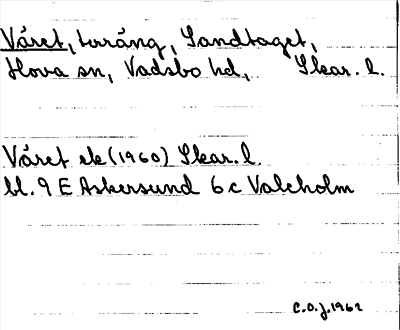 Våret, terräng, Sandtaget,
Hova sn, Vadsbo hd, Skar. l.
Våret ek (1960) Skar. l.
bl. 9 E Askersund 6 c Valeholm
C.O.J. 1962